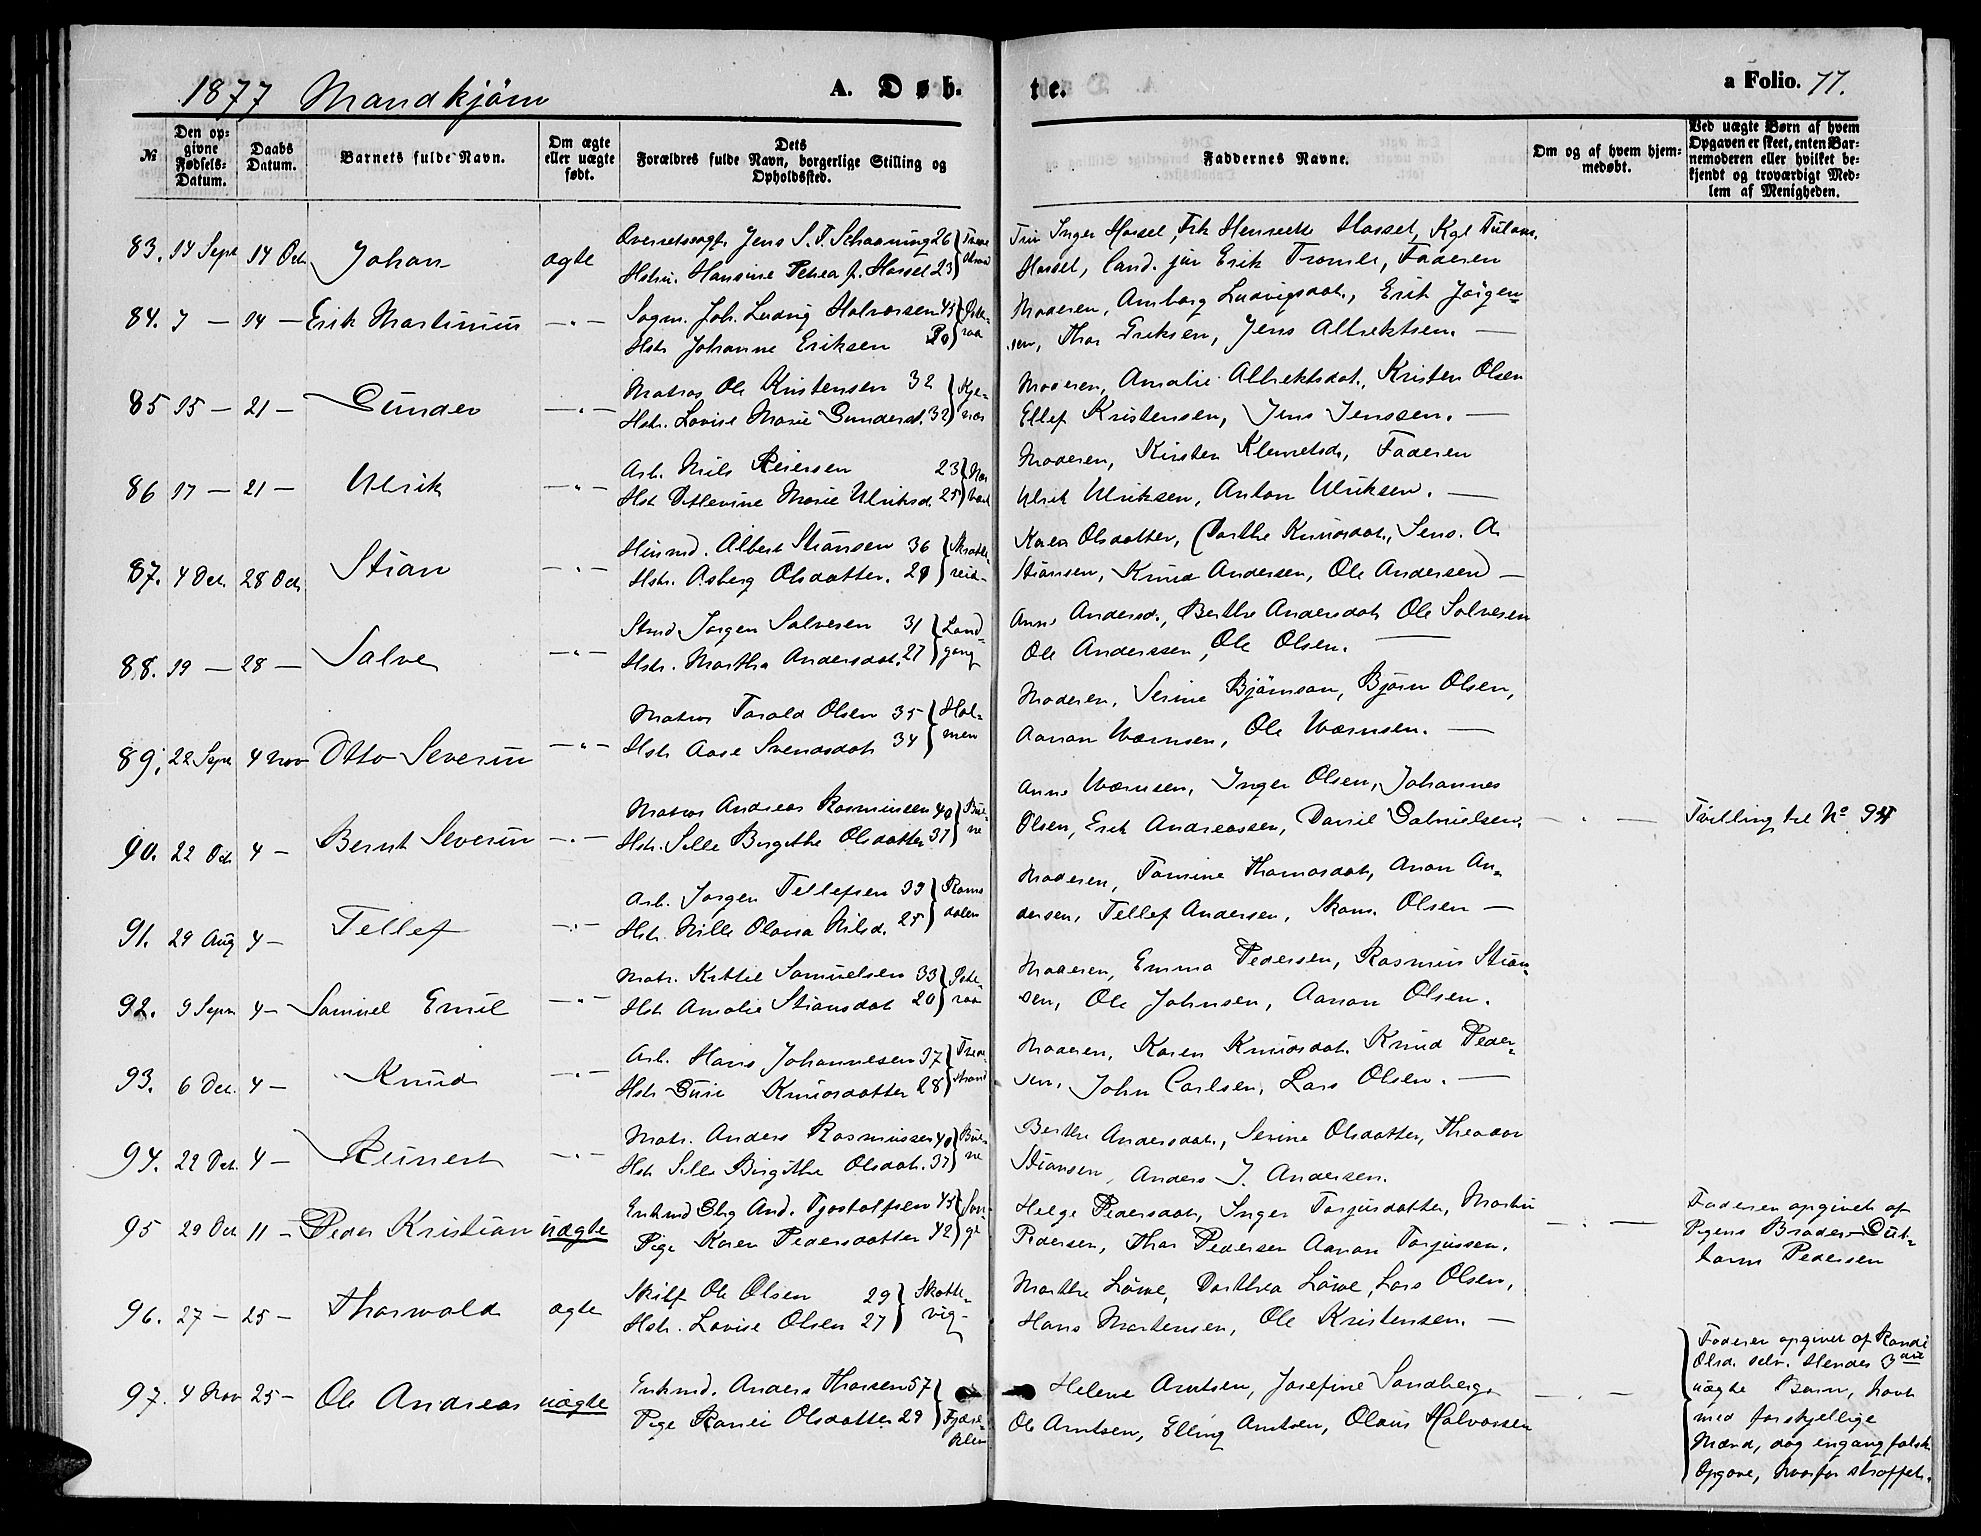 1877 Mandkjøn A. Døb- te. a Folio. 77.
№ Den op-givne Fødsels-Datum. Daabs Datum. Barnets fulde Navn. Om ægte eller uægte født. Dets Forældres fulde Navn, borgerlige Stilling og Opholdssted. Faddernes Navne. Om og af hvem hjem-medøbt. Ved uægte Børn af hvem Opgaven er skeet, enten Bar-nemoderen eller hvilket be-kjendt og troværdigt Med-lem af Menigheden.
83. 14 Sept 14 Oct Johan ægte Jens S. T. Schaaning 26 Inger Hassel, Frk Henriette Hassel, Kgl Fuldm.
Hstru. Hansine Petrea f. Hassel 23 Hassel, Cand. jur Erik Tromle, Faderen
84. 7 — 14 — Erik Martinius —"— Sogm. Joh. Ludvig Halvorsen 45 Moderen, Amborg Ludvigsdat., Erik Jörgen-
Hstr Johanne Eriksen sen, Thor Eriksen, Jens Albrektsen. —
85 15 — 21 — Gunder —"— Matros Ole Kristensen 32 Moderen, Amalie Albrektsdat., Kristen Olsen
Hstr. Lovise Marie Gundersd. 32 Ellef Kristensen, Jens Jenssen. —
86 17 — 21 — Ulrik —"— Arb. Nils Reiersen 23 Moderen, Kirsten Klemetsd., Faderen
Hst Detlevine Marie Ulriksd. 25 Ulrik Ulriksen, Anton Ulriksen. —
87. 4 Oct. 28 Oct Stian —"— Albert Stiansen 36 Karen Olsdatter, Dorthe Knudsdat., Jens. A
Hstr. Asberg Olsdatter. Stiansen, Knud Andersen, Ole Andersen —
88. 19 — 28 — Salve —"— Strmd Jørgen Salvesen 31 Land- Anne Andersd., Berthe Andersdat. Ole Salvesen
Hstr. Martha Andersdat. 27 gang Ole Anderssen, Ole Olsen. —
89. 22 Sept 4 Nov Otto Severin —"— Matros Tarald Olsen 35 Hol- Moderen, Serine Bjørnsen, Bjørn Olsen,
Hstr Aase Svendsdat. 34 men Aanon Wærnsen, Ole Wærnsen. —
90. 22 Oct 4 — Bernt Severin —"— Matros Andreas Rasmussen 40 Bue- Anne Wærnsen, Inger Olsen, Johannes
Hstr. Sille Birgithe Olsdatter 37 ne Olsen, Erik Andreassen, Daniel Gabrielsen. — " — Tvilling til No 94
91. 29 Aug 4 — Tellef —"— Arb. Jørgen Tellefsen 39 Rams Moderen, Tomine Thomasdat., Anon An-
Hstr. Nille Olava Nilsd. 25 dalen dersen, Tellef Andersen, Olsen —
92. 9 Sept 4 — Samuel Emil —"— Matr. Kittil Samuelsen 33 Moderen, Emma Pedersen, Rasmus Stian-
Hstr Amalie Stiansdat 20 sen, Ole Johnsen, Aanon Olsen.
93. 6 Oct. 4 — Knud —"— Arb. Hans Johannesen 37 Moderen, Karen Knudsdat. Knud Peder-
Hstr Guri Knudsdatter 28 sen, John Carlsen, Lars Olsen. —
94. 22 Oct. 4 — Reinert —"— Matr. Anders Rasmussen 40 Bue- Berthe Andersdat., Serine Olsdatter, Theodor
Hstr Sille Birgithe Olsdat. 37 ne Stiansen, Anders J. Andersen.
95 29 Oct 11 — Peder Kristian uægte Enkmd And. Tjostolfsen 45 Son- Helge Pedersdat., Inger Torjusdatter, Martin — " — Faderen opgivet af
Pige Karen Pedersdatter 42 ge Pedersen, Thor Pedersen Aanon Torjussen. Pigens Broder Gut-
torm Pedersen
96. 27 — 25 — Thorwald ægte Skilf Ole Olsen 29 Skotte- Marthe Löwe, Dorthea Löwe, Lars Olsen,
Hstr. Lovise Olsen 27 vig Hans Mortensen, Ole Kristensen. —
97. 4 Nov 25 — Ole Andreas uægte Enkmd. Anders Thorsen 57 Helene Arntsen, Josefine Sandberg, — " — Faderen opgivet af Randi
Pige Randi Olsdatter 29 Ole Arntsen, Elling Arntsen, Olaus Halvorsen Olsd. selv. Hendes 3die
uægte Barn, havt
med forskjellige
Mænd, dog engang falsk
Opgave, hvorfor straffet.